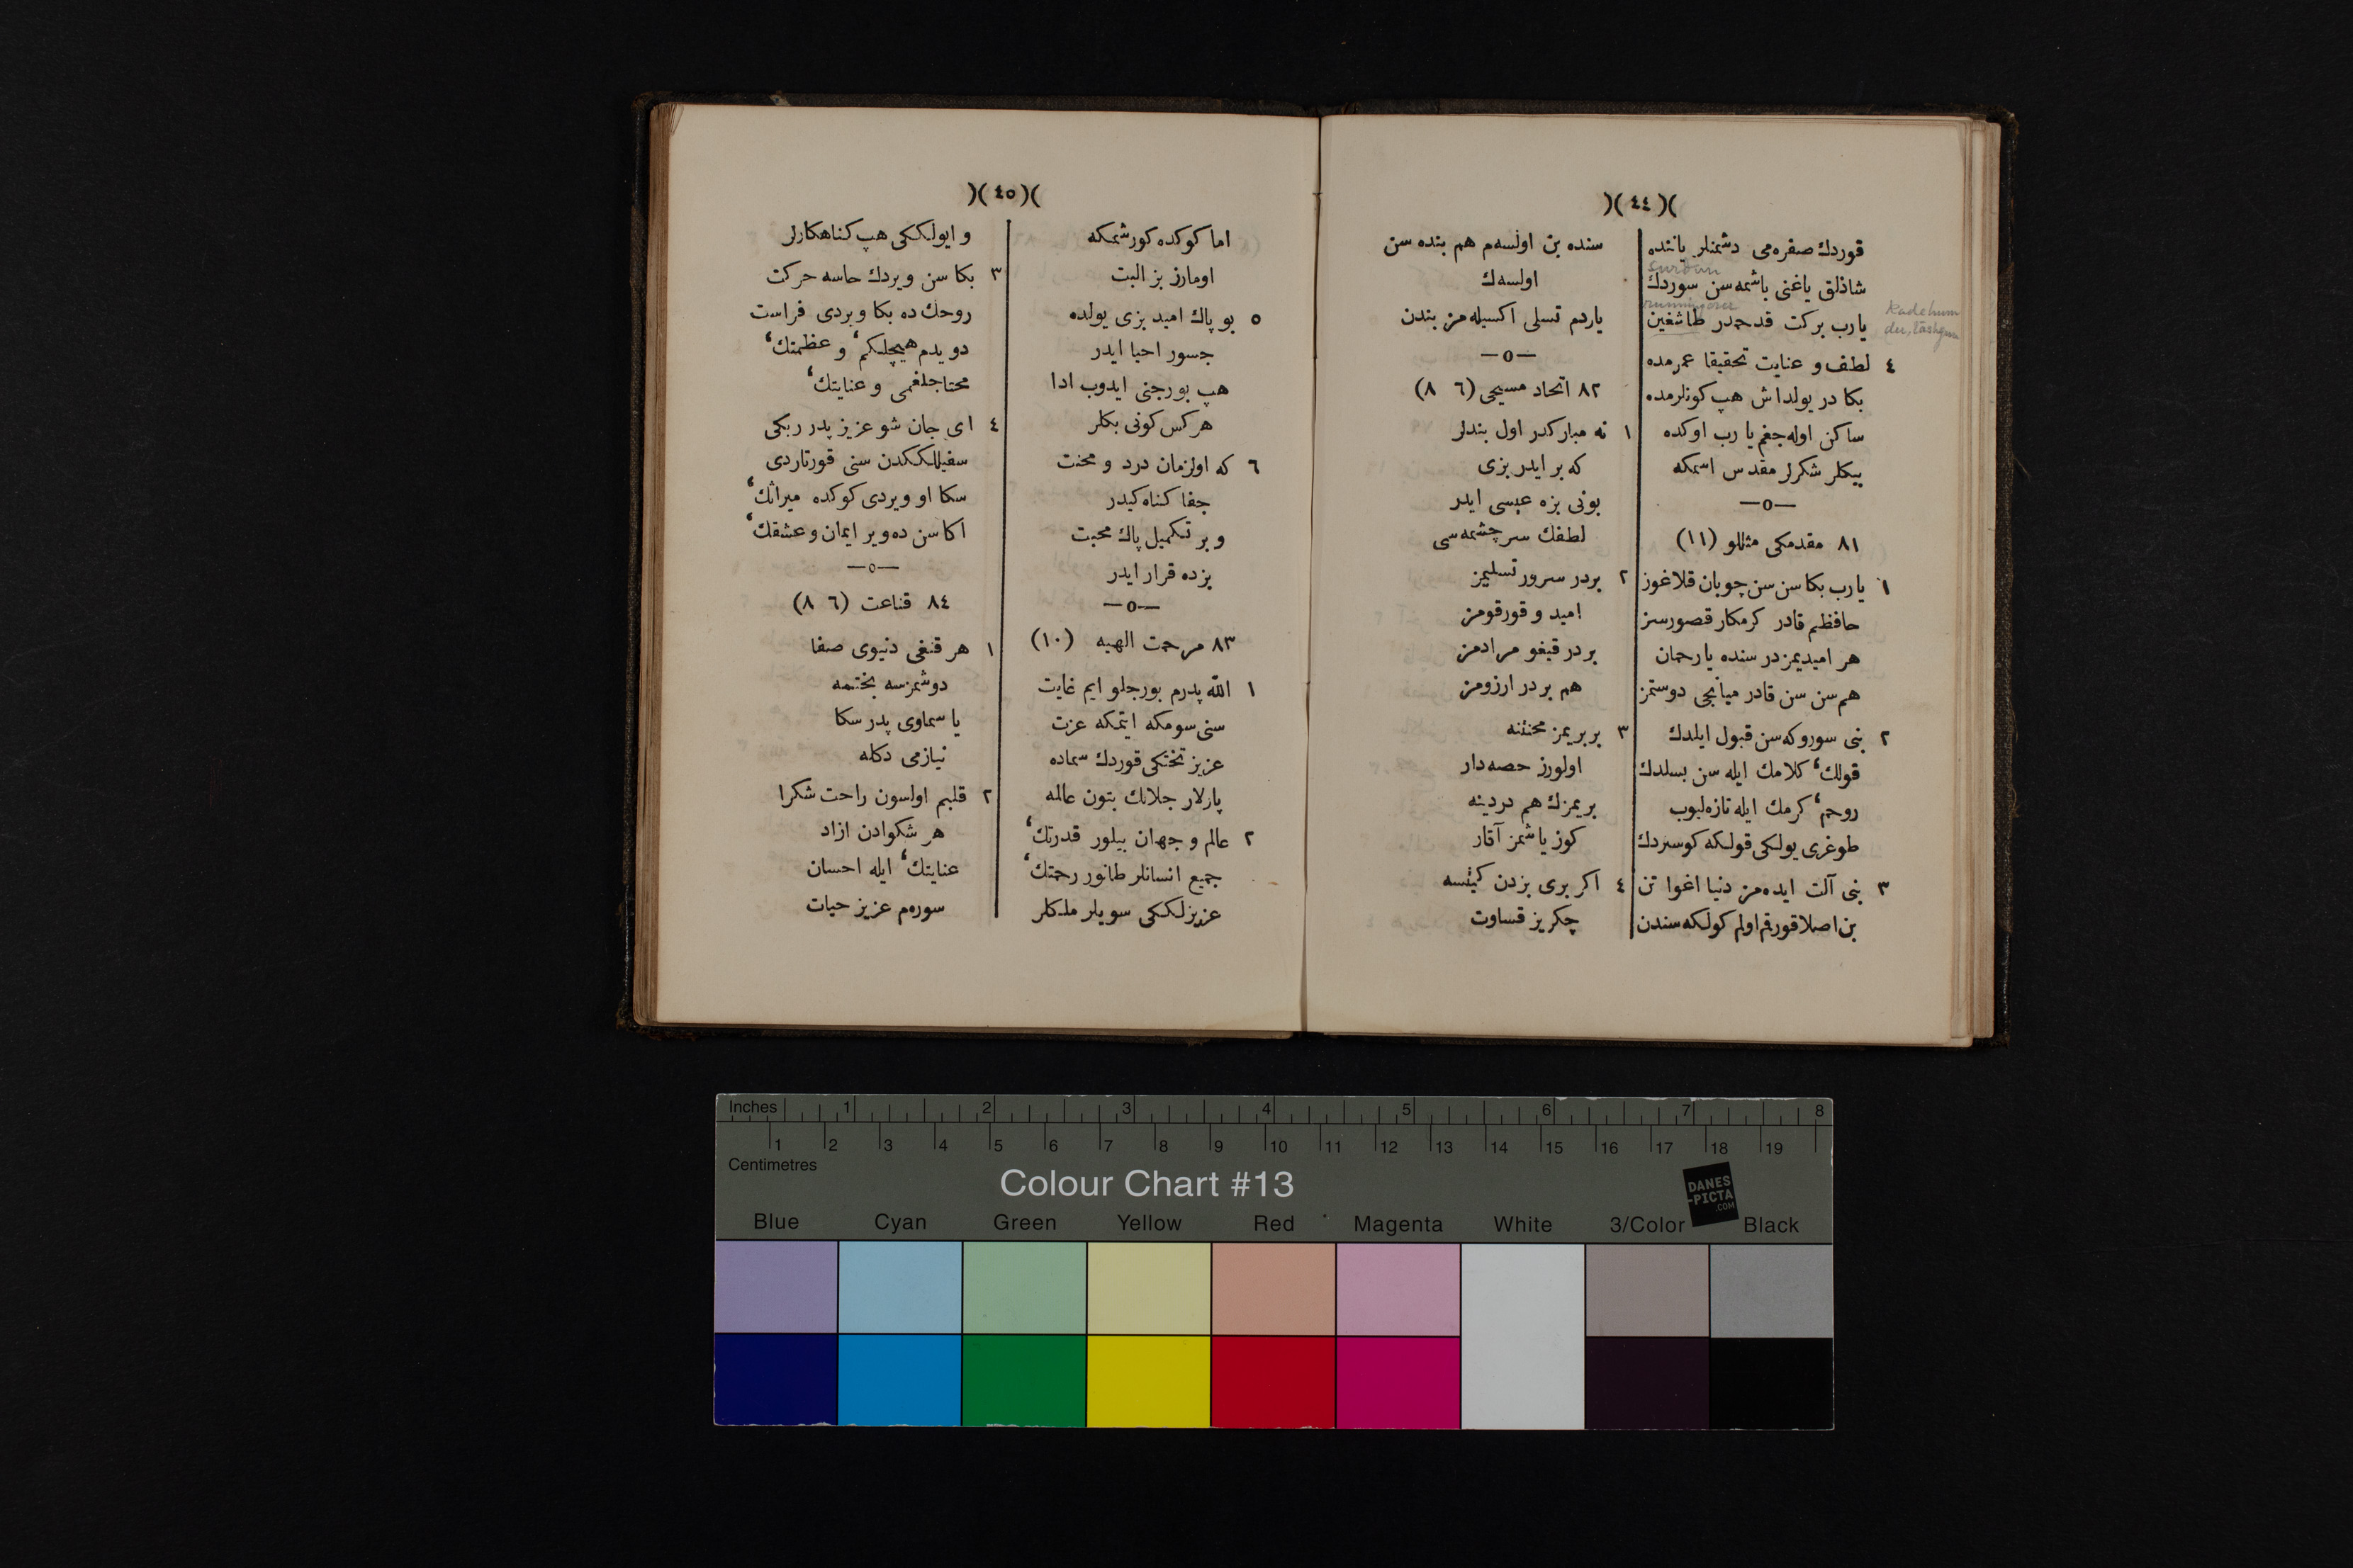 )( ٤٤ )(
قوردك صفره‌می دشمنلر یاننده
surdun
شاذلق یاغنی باشمه سن سوردك
running over
یا رب بركت قدحمدر طاشغین
Kadehum
der, tashgun
٤ لطف و عنایت تحقیقا عمرمده
بكا در یولداش هپ كونلرمده
ساكن اوله‌جغم یا رب اوكده
بیكلر شكرلر مقدس اسمكه
—o—
٨١ مقدمكی مثللو (١١)
١ یا رب بكا سن سن چوبان قلاغوز
حافظم قادر كرمكار قصورسز
هر امیدیمز در سنده یا رحمان
هم سن سن قادر میانجی دوستمز
٢ بنی سوروكه سن قبول ایلدك
قولك، كلامك ایله سن بسلدك
روحم، كرمك ایله تازه لبوب
طوغری یولكی قولكه كوستردك
٣ بنی آلت ایده‌مز دنیا اغوا تن
بن اصلا قورقم اولم كولكه سندن
سنده بن اولسه‌م هم بنده سن
اولسه‌ك
یاردم تسلی اكسیله‌مز بندن
—o—
٨٢ اتحاد مسیحی (٦ ٨)
١ نه مباركدر اول بندلر
كه بر ایدر بزی
بونی بزه عیسی ایدر
لطفك سر چشمه سی
٢ بردر سرور تسلیمز
امید و قورقومز
بر در قیغو مرادمز
هم بر در ارزومز
٣ بر بریمز محنتنه
اولورز حصه‌دار
بریمزك هم دردینه
كوز یاشمز آقار
٤ اكر بری بزدن كیتسه
چكریز قساوت
)( ٤٥ )(
اما كوكده كورشمكه
اومارز بز البت
٥ بو پاك امید بزی یولده
جسور احیا ایدر
هپ بورجنی ایدوب ادا
هركس كونی بكلر
٦ كه اولزمان درد و محنت
جفا كناه كیدر
و بر تكمیل پاك محبت
بزده قرار ایدر
—o—
٨٣ مرحمت الهیه (١٠)
١ الله پدرم بورجلو ایم غایت
سنی سومكه ایتمكه عزت
عزیز تختكی قوردك سماده
پارلار جلالك بتون عالمه
٢ عالم و جهان بیلور قدرتك،
جمیع انسانلر طانور رحمتك،
عزیزلككی سویلر ملكلر
و ایولككی هپ كناهكارلر
٣ بكا سن ویردك حاسه حركت
روحك ده بكا ویردی فراست
دویدم هیچلكم، و عظمتك،
محتاجلغمی و عنایتك،
٤ ای جان شو عزیز پدر ربكی
سفیللككدن سنی قورتاردی
سكا او ویردی كوكده میراثك،
اكا سن ده ویر ایمان و عشقك،
—o—
٨٤ قناعت (٦ ٨)
١ هر قنغی دنیوی صفا
دوشمزسه بختمه
یا سماوی پدر سكا
نیازمی دكله
٢ قلبم اولسون راحت شكرا
هر شكوادن ازاد
عنایتك، ایله احسان
سوره‌م عزیز حیات
Inches 1 2 3 4 5 6 7 8
1 2 3 4 5 6 7 8 9 10 11 12 13 14 15 16 17 18 19
Centimetres
Colour Chart #13
DANES
-PICTA
.COM
Blue Cyan Green Yellow Red Magenta White 3/Color Black